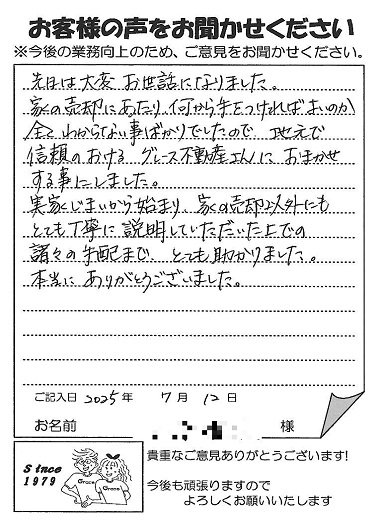 お客様の声をお聞かせください
※今後の業務向上のため、ご意見をお聞かせください。
先日は大変 お世話になりました。
家の売却にあたり、何から手をつければよいのか
全て わからない事ばかりでしたので 地元で
信頼のおける グレース不動産さんに おまかせ
する事にしました。
実家じまいから始まり、家の売却以外にも
とても丁寧に 説明していただいた上での
諸々の手配まで、とても助かりました。
本当に ありがとうございました。
ご記入日 2025年 7月 12日
お名前 様
Since
1979
Grace
Grace
貴重なご意見ありがとうございます!
今後も頑張りますので
よろしくお願いいたします